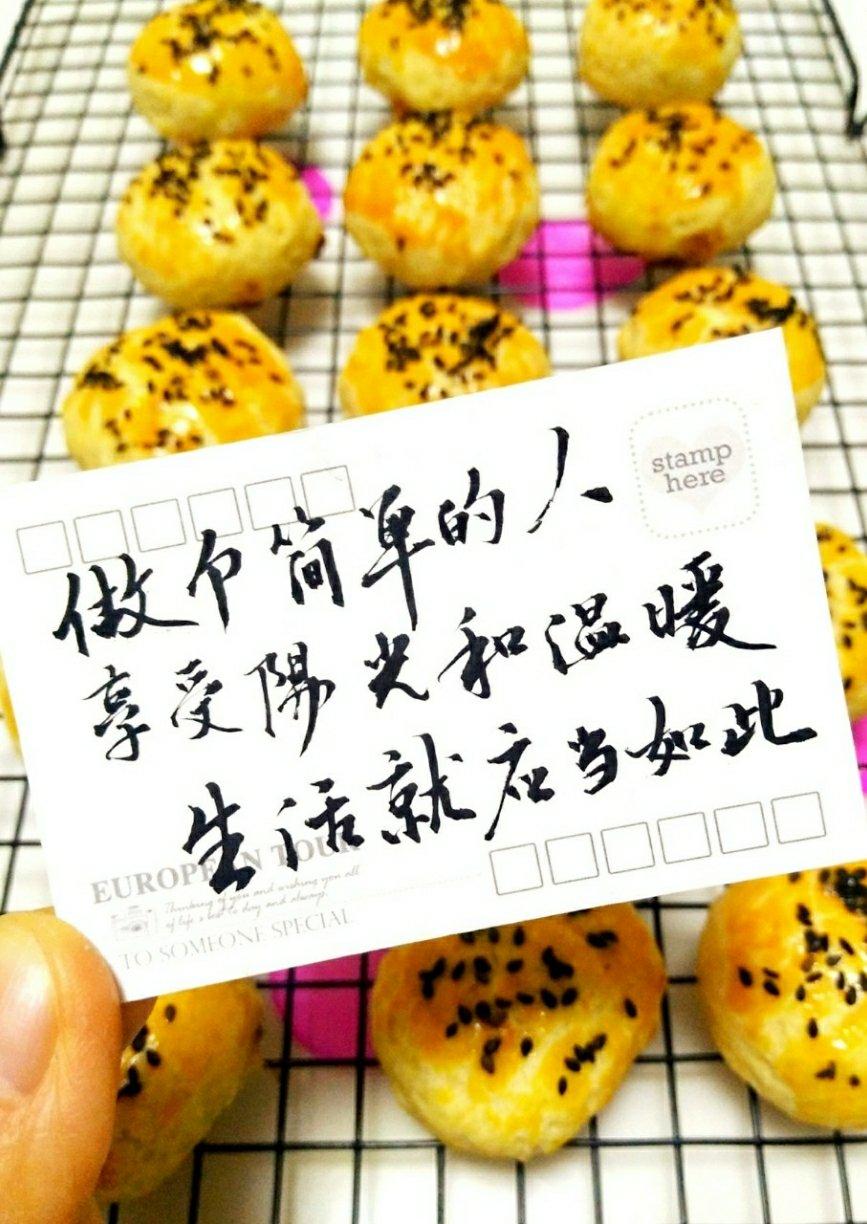 stamp
here
做个简单的人
享受陽光和温暖
生活就应当如此
EUROPEAN TOUR
Thinking of you and wishing you all
of life's best to day and always.
TO SOMEONE SPECIAL